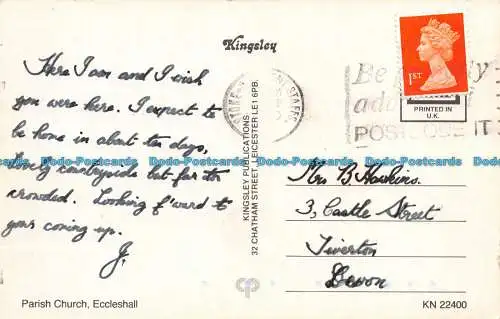 Kingsley
Here I am and I wish
you were here. I expect to
be home in about ten days,
Lovely countryside but far too
crowded. Looking f'ward to
your coming up.
J.
Parish Church, Eccleshall
KINGSLEY PUBLICATIONS
32 CHATHAM STREET, LEICESTER LE1 6PB.
STAFFS
Be
POSTCODE IT
1ST
PRINTED IN
U.K.
Mrs B Hawkins.
3, Castle Street
Tiverton
Devon
KN 22400
Dodo-Postcards Dodo-Postcards Dodo-Postcards Dodo-Postcards